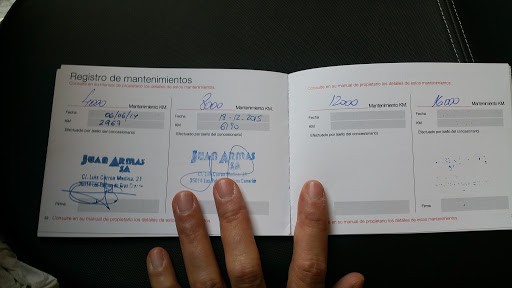 Registro de mantenimientos
Consulte en su manual de propietario los detalles de estos mantenimientos.
4000 Mantenimiento KM.
Fecha 06/06/14
KM. 2967
Efectuado por (sello del concesionario)
JUAN ARMAS
SA
C/. Luis Correa Medina, 21
Firma
8000 Mantenimiento KM.
Fecha 18-12-2015
KM. 6130
Efectuado por (sello del concesionario)
JUAN ARMAS
SA
Consulte en su manual de propietario los detalles de estos mantenimientos.
Consulte en su manual de propietario los detalles de estos mantenimientos.
12000 Mantenimiento KM.
Fecha
KM.
Efectuado por (sello del concesionario)
Firma
16000 Mantenimiento KM.
Fecha
KM.
Efectuado por (sello del concesionario)
Firma
Consulte en su manual de propietario los detalles de estos mantenimientos.